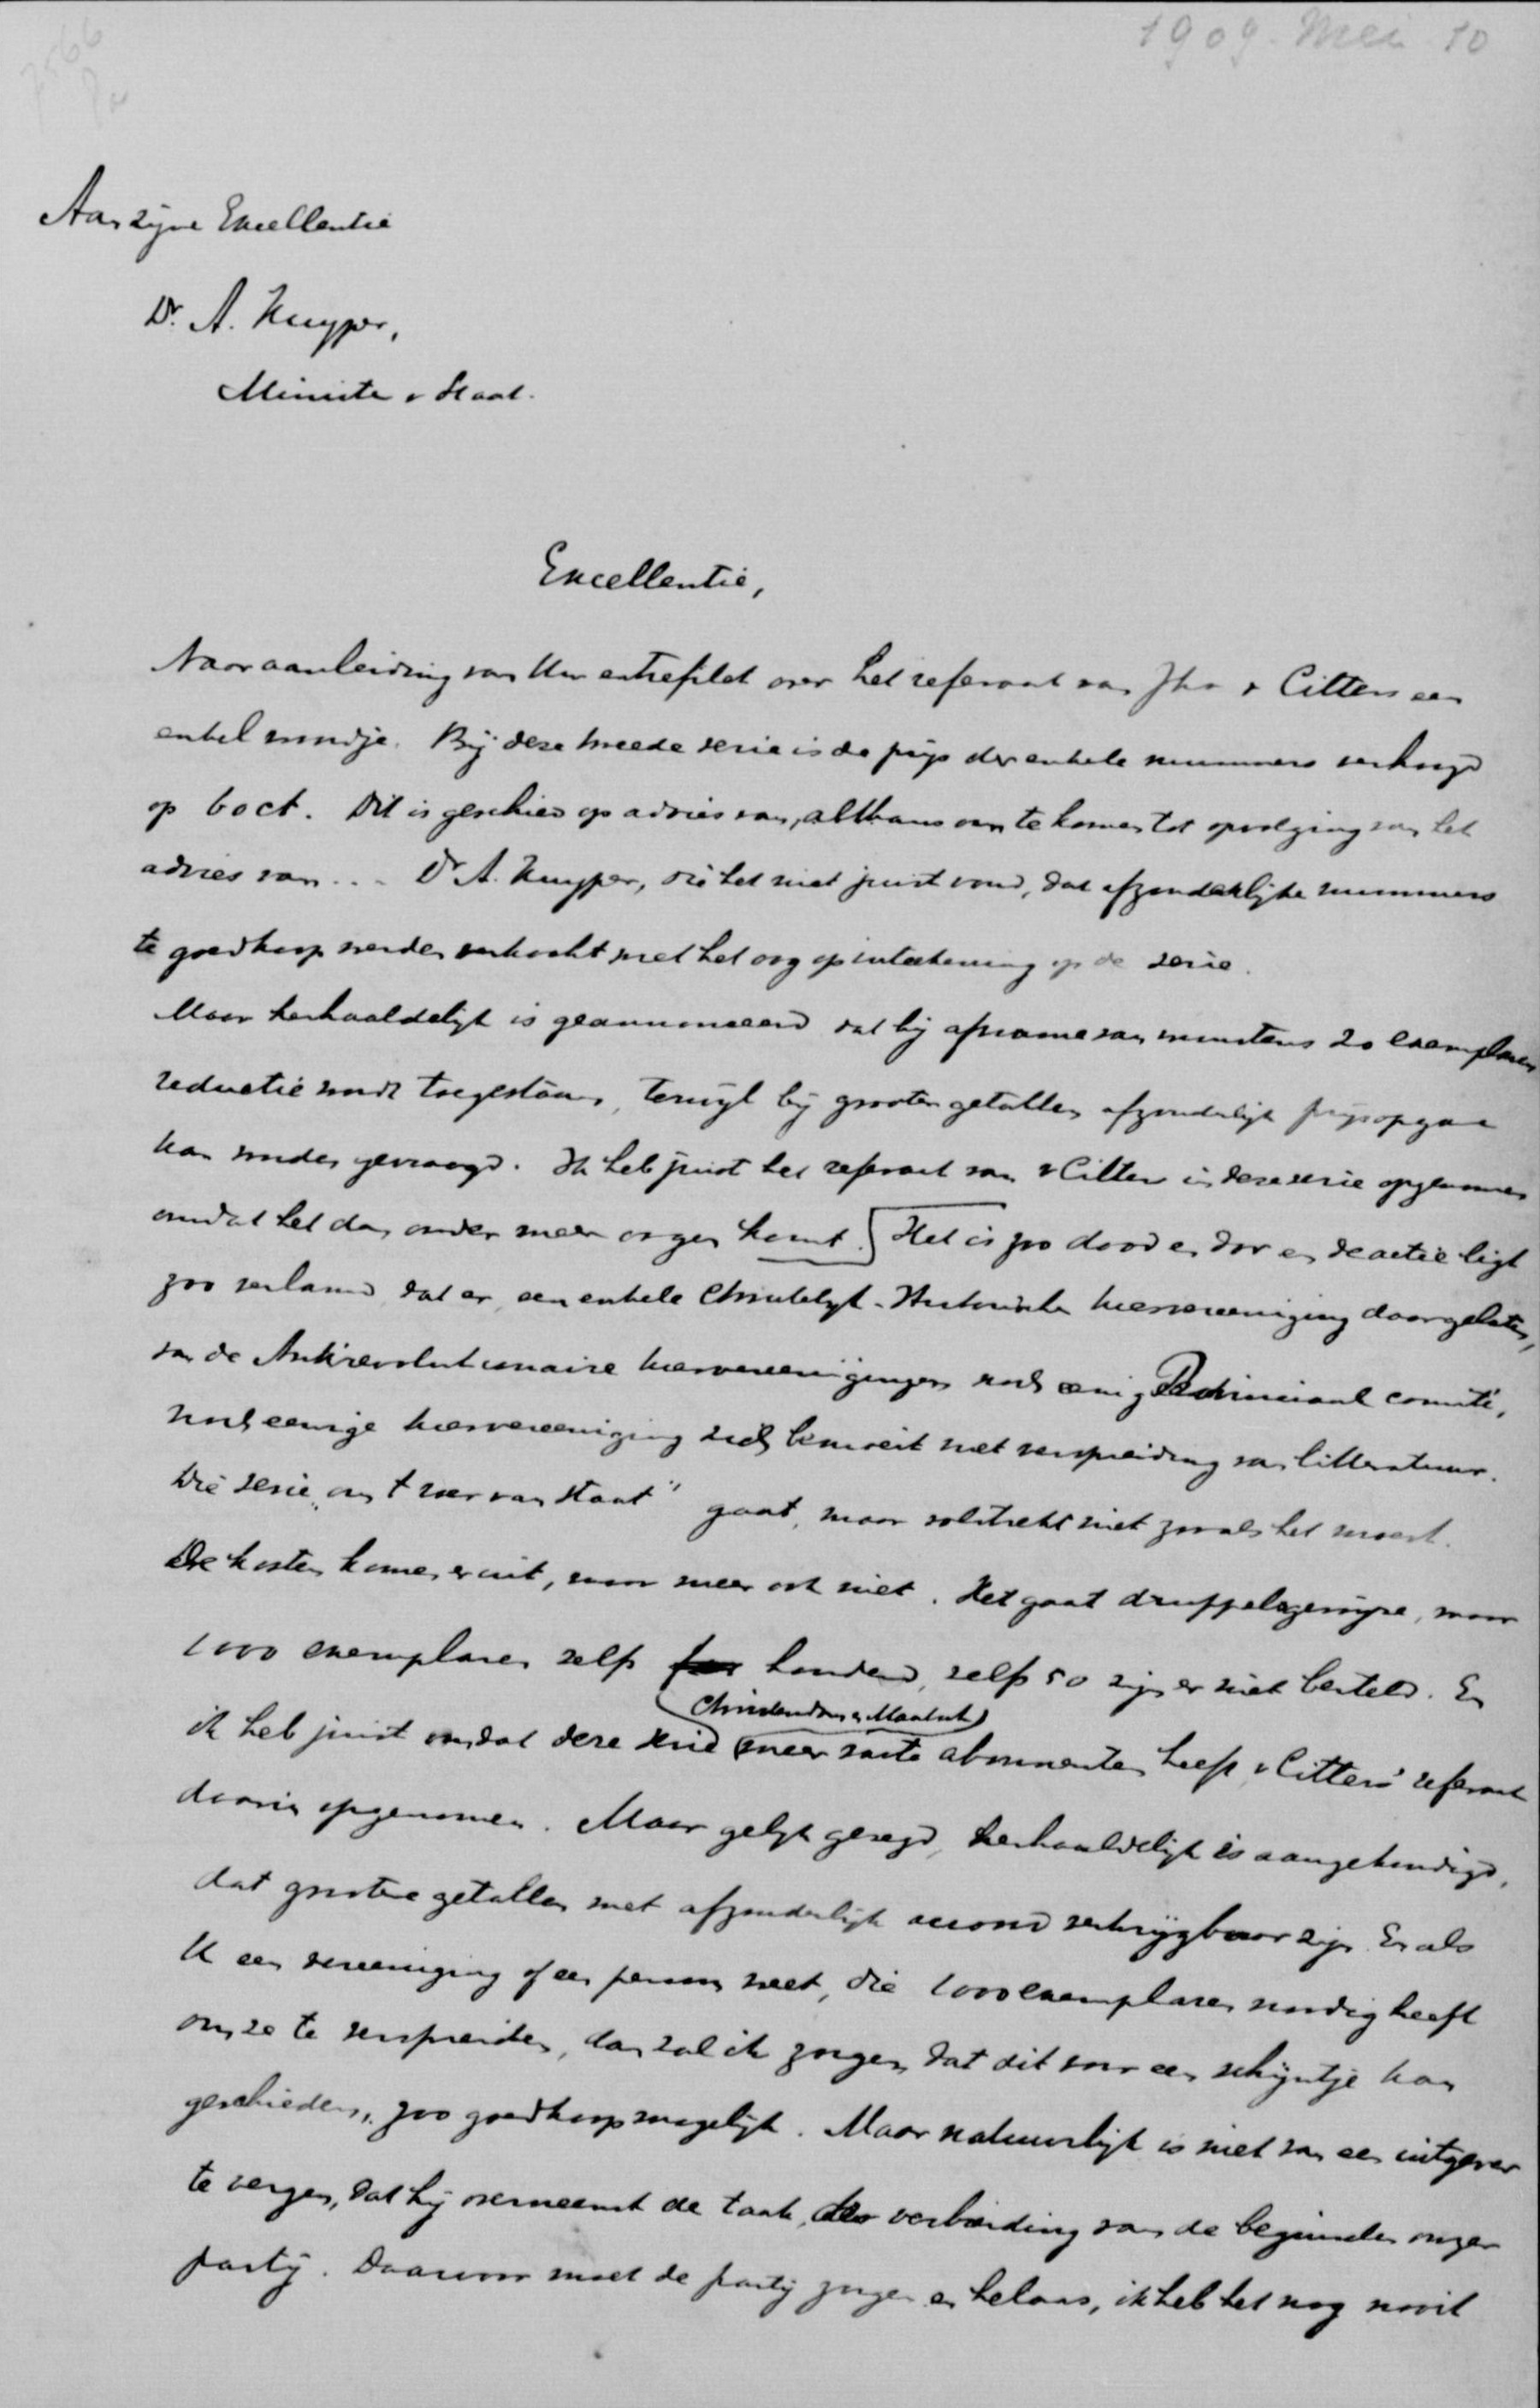 1909. Mei 10
7566
Aan Zijne Excellentie
Dr. A. Kuyper,
Minister v Staat.
Excellentie,
Naar aanleiding van Uw entrefilet over het referaat van Jhr v Citters een
enkel woordje. Bij deze tweede serie is de prijs der enkele nummers verhoogd
op 60 ct. Dit is geschied op advies van, althans om te komen tot opvolging van het
advies van ... Dr A. Kuyper, die het niet juist vond, dat afzonderlijke nummers
te goedkoop werden verkocht met het oog op inteekening op de serie.
Maar herhaaldelijk is geannonceerd dat bij afname van minstens 20 exemplaren
reductie wordt toegestaan, terwijl bij grooter getallen afzonderlijk prijsopgave
kan worden gevraagd. Ik heb juist het referaat van v Citters in deze serie opgenomen
omdat het dan onder meer oogen komt. Het is zoo dood en dor en de actie ligt
zoo verlamd dat er, een enkele Christelijk-Historische kiesvereeniging daargelaten,
van de Antirevolutionaire kiesvereenigingen noch eenig Provinciaal comité,
noch eenige kiesvereeniging zich bemoeit met verspreiding van litteratuur.
Die serie "ons t roer van staat" gaat, maar volstrekt niet zooals het moest.
De kosten komen er uit, maar meer ook niet. Het gaat druppelsgewijze, maar
1000 exemplaren zelfs honderd, zelfs 50 zijn er niet besteld. En
Christendom en Maatsch)
ik heb juist omdat deze serie (meer vaste abonnenten heeft v Citters' referaat
daarin opgenomen. Maar gelijk gezegd, herhaaldelijk is aangekondigd,
dat grootere getallen met afzonderlijk accoord verkrijgbaar zijn. En als
U een vereeniging of een persoon weet, die 1000 exemplaren noodig heeft
om ze te verspreiden, dan zal ik zorgen dat dit voor een schijntje kan
geschieden, zoo goedkoop mogelijk. Maar natuurlijk is niet van een uitgever
te vergen, dat hij overneemt de taak der verbreiding van de beginselen onzer
partij. Daarvoor moet de partij zorgen en helaas, ik heb het nog nooit